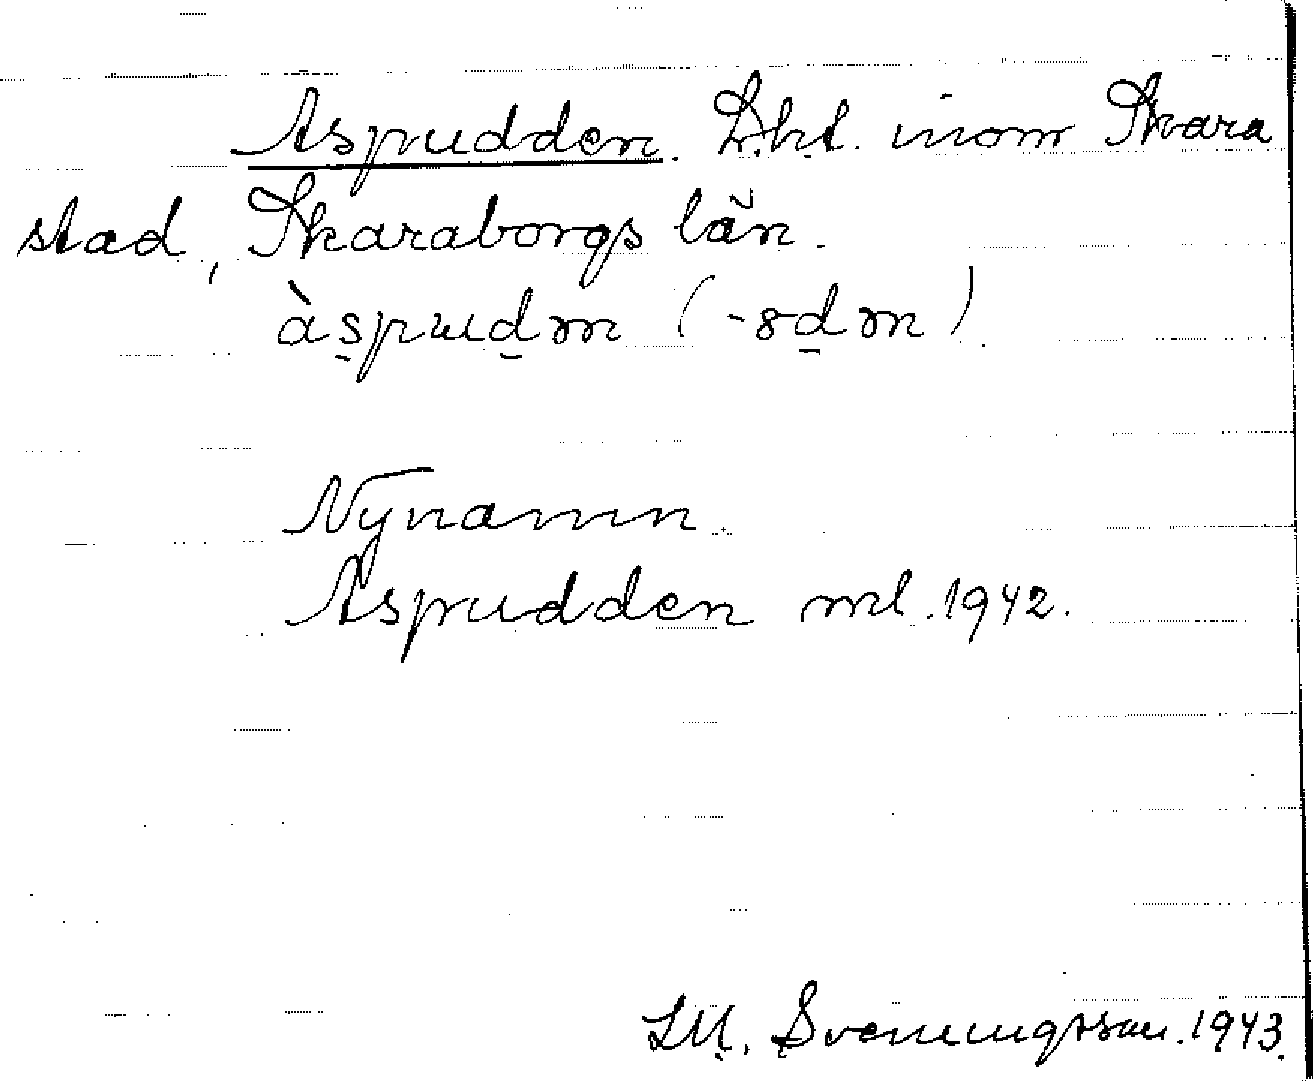 Aspudden. Lht. inom Skara
stad, Skaraborgs län.
àspudən (-8dən)
Nynamn.
Aspudden ml. 1942.
Sveningsson. 1943.